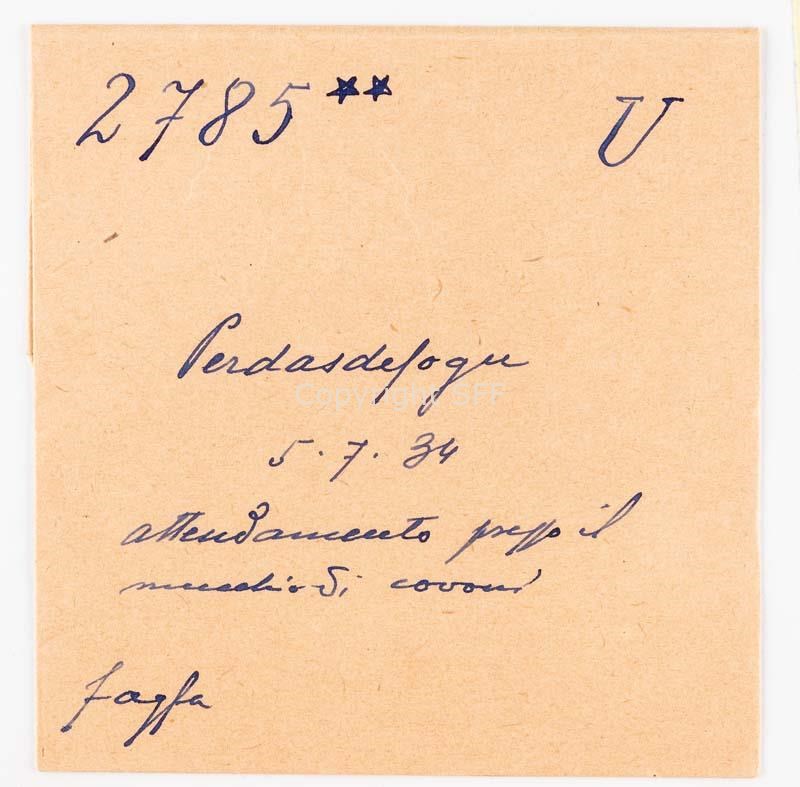 2785** U
Perdasdefogu
Copyright SFF
5.7.34
attendamento presso il
mucchio di covoni